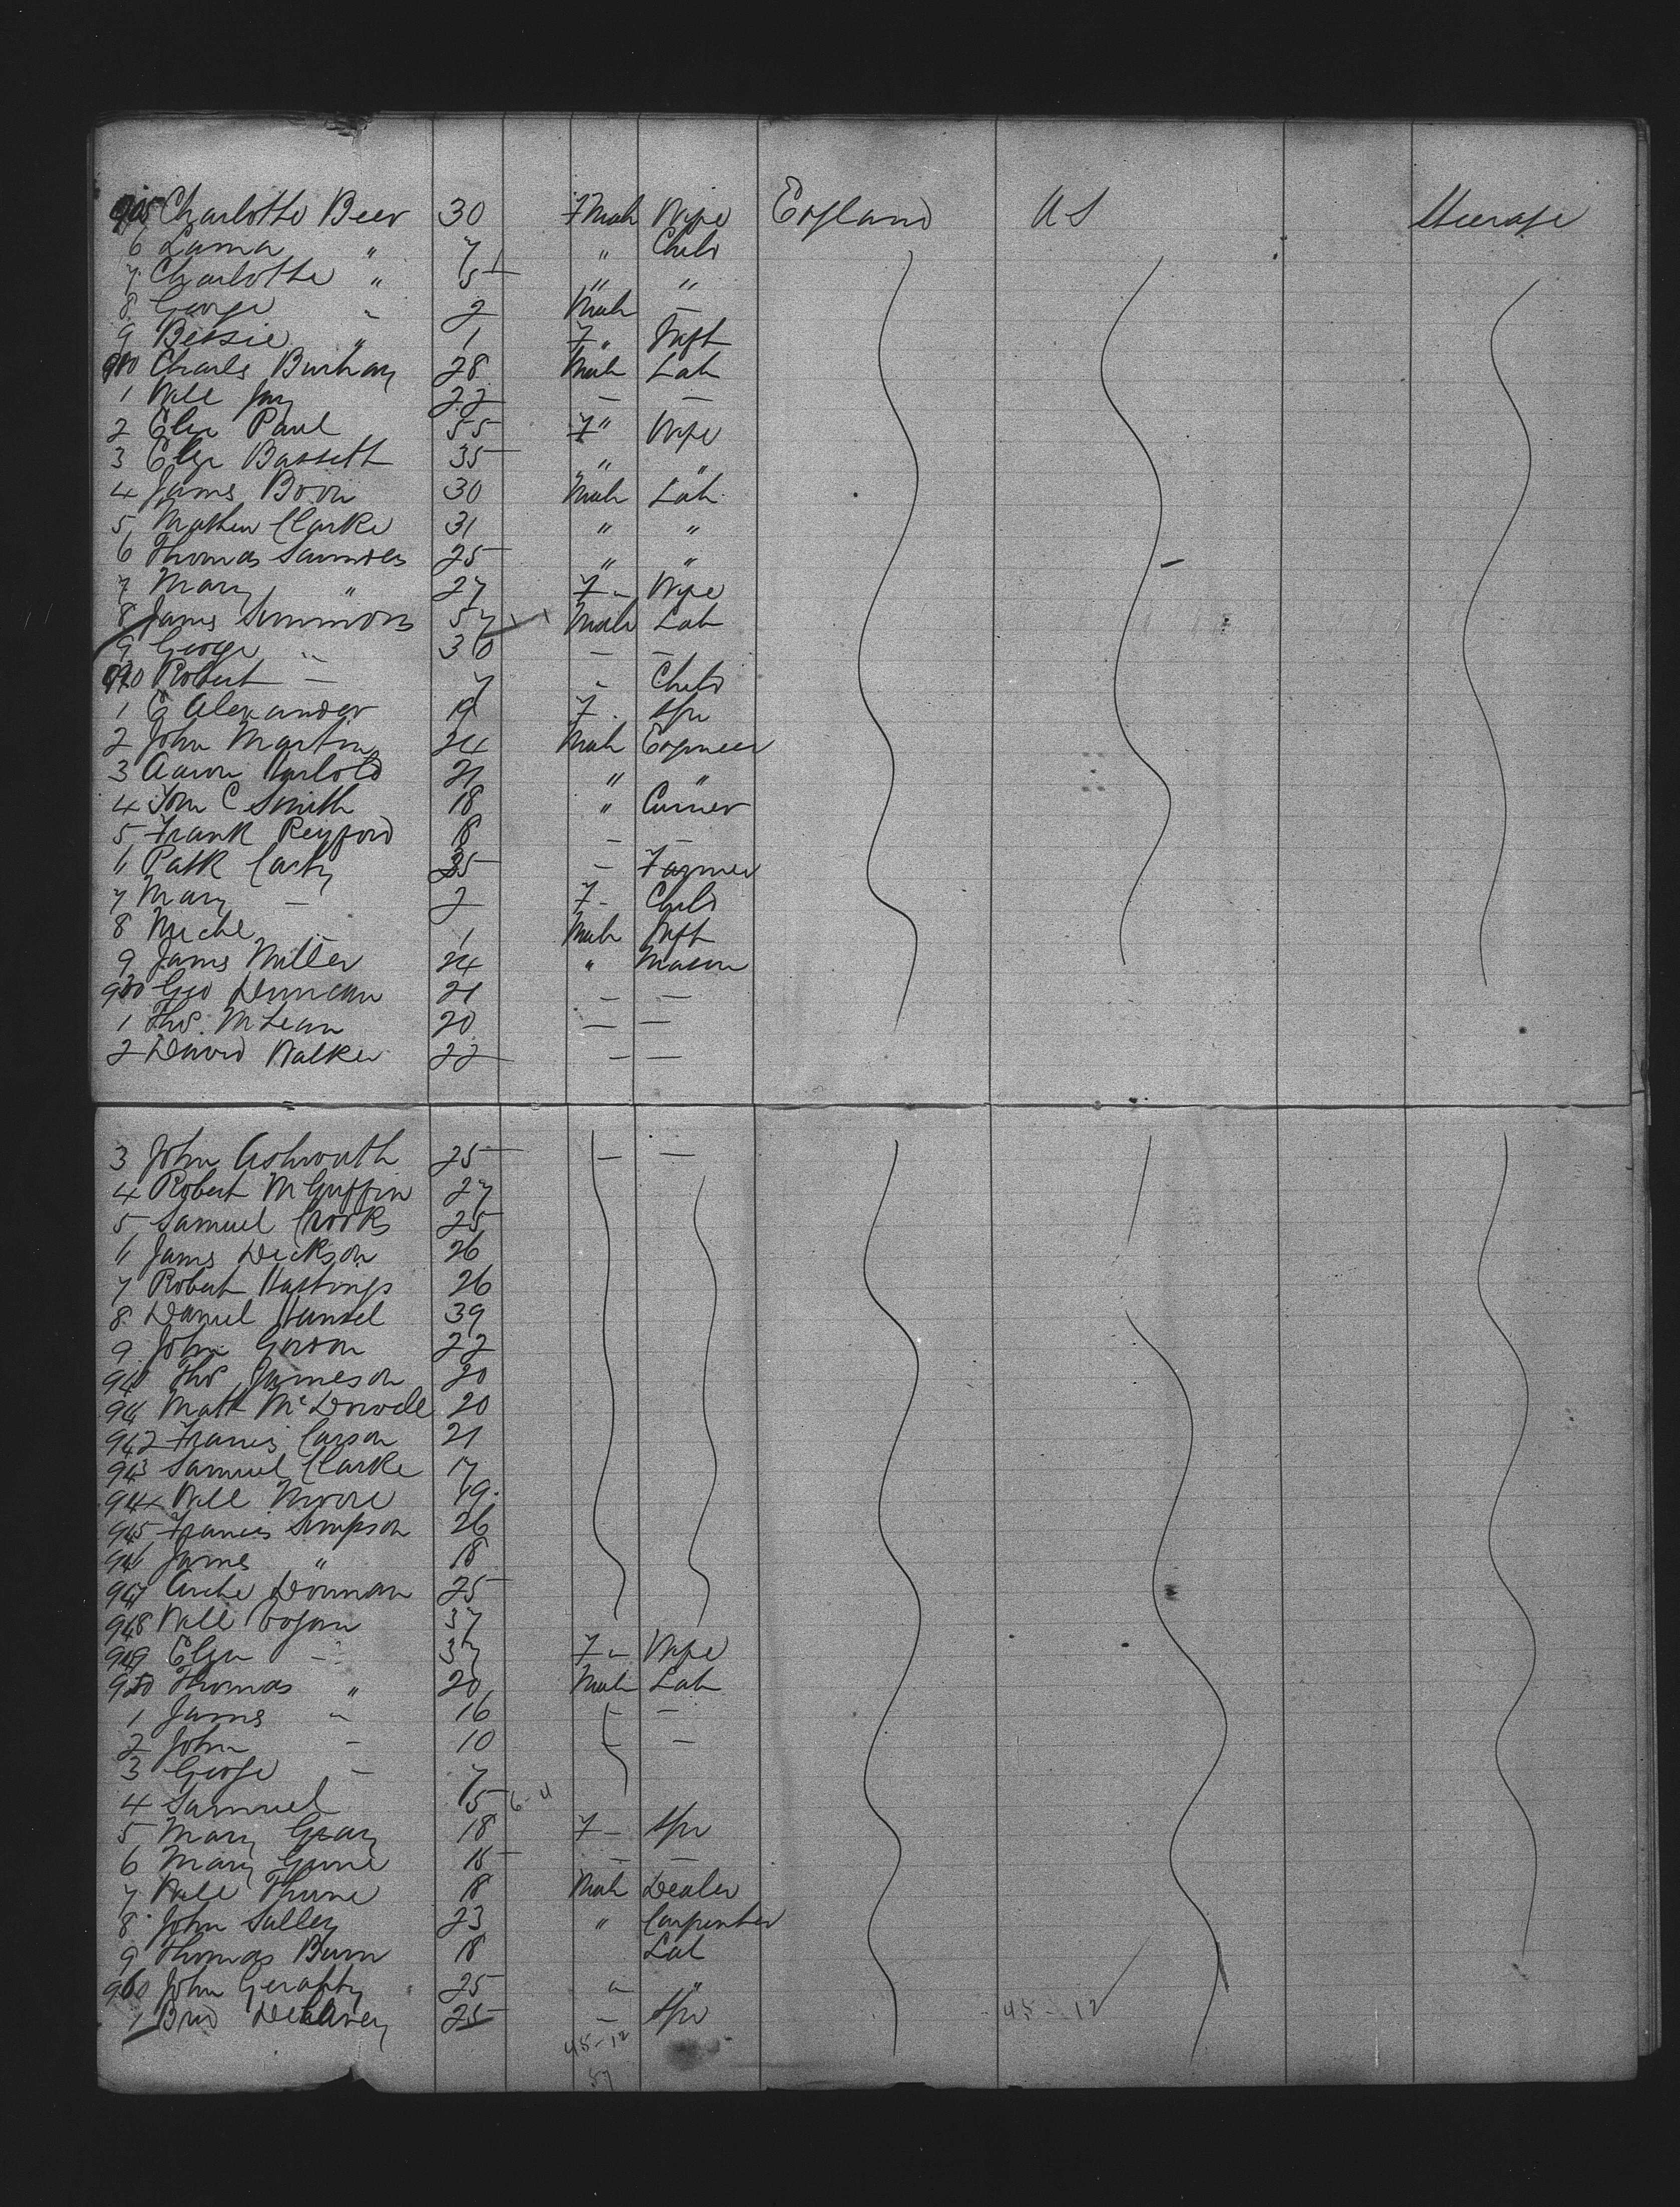 905 Charlotte Beer 30 Fmale Wife England US Steerage
6 Laura " 7 " Child
7 Charlotte " 5 " "
8 George " 2 Male —
9 Bessie " 1 F " Inft
910 Charls Burhay 28 Male Lab
1 Will Jay 22 — —
2 Eliz Paul 55 F " Wife
3 Eliz Bassett 35 " "
4 James Boon 30 Male Lab
5 Mathew Clarke 31 " "
6 Thomas Saunders 25 " "
7 Mary " 27 F " Wife
8 James Simmons 57 Male Lab
9 George " 36 — —
920 Robert — 7 " Child
1 E Alexander 19 F Spr
2 John Martin 24 Male Engineer
3 Aaron 21 " "
4 Tom C Smith 18 " Currier
5 Frank Reyford 18 — —
6 Patk Casty 35 — Farmer
7 Mary — 2 F — Child
8 Miche — 1 Male Inft
9 James Miller 24 " Mason
930 Geo Duncan 21 — —
1 Thos McLean 20 — —
2 David Walker 22 — —
3 John Ashworth 25 — —
4 Robert McGuffin 27
5 Samuel Crooks 25
6 James Dickson 26
7 Robert Hastings 26
8 Daniel Hansel 39
9 John Gordon 22
940 Thos Jameson 20
941 Matt McDowell 20
942 Francis Carson 21
943 Samuel Clarke 17
944 Will Moore 19
945 Francis Simpson 26
946 James " 18
947 Archie Dorman 25
948 Will Cogan 37
949 Eliza " 37 F " Wife
950 Thomas " 20 Male Lab
1 James " 16 — —
2 John — 10 — —
3 George — 7
4 Samuel 5 6-4
5 Mary Gray 18 F — Spr
6 Mary 18 — —
7 Will Thorne 18 Male Dealer
8 John Salley 23 " Carpenter
9 Thomas Burn 18 Lab
960 John Geraghty 25 " "
1 Brid Delaney 25 — Spr 45-12
45-12
57